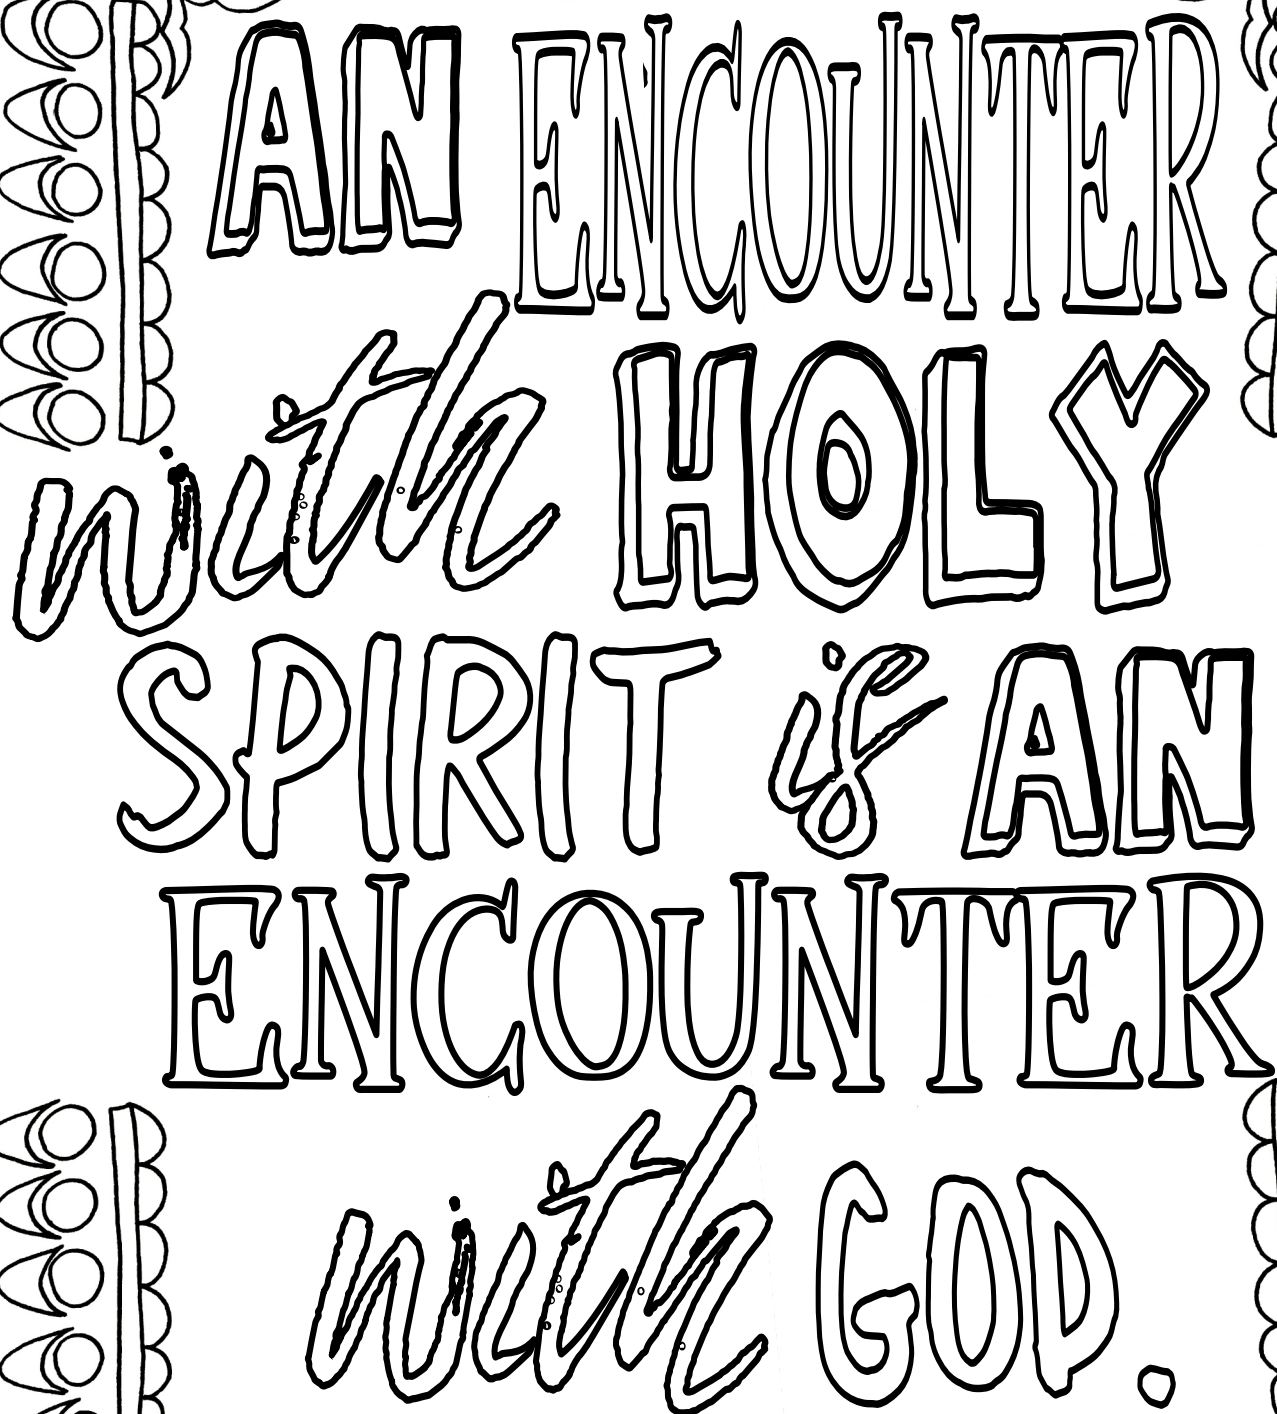 AN ENCOUNTER
with HOLY
SPIRIT is AN
ENCOUNTER
with GOD.